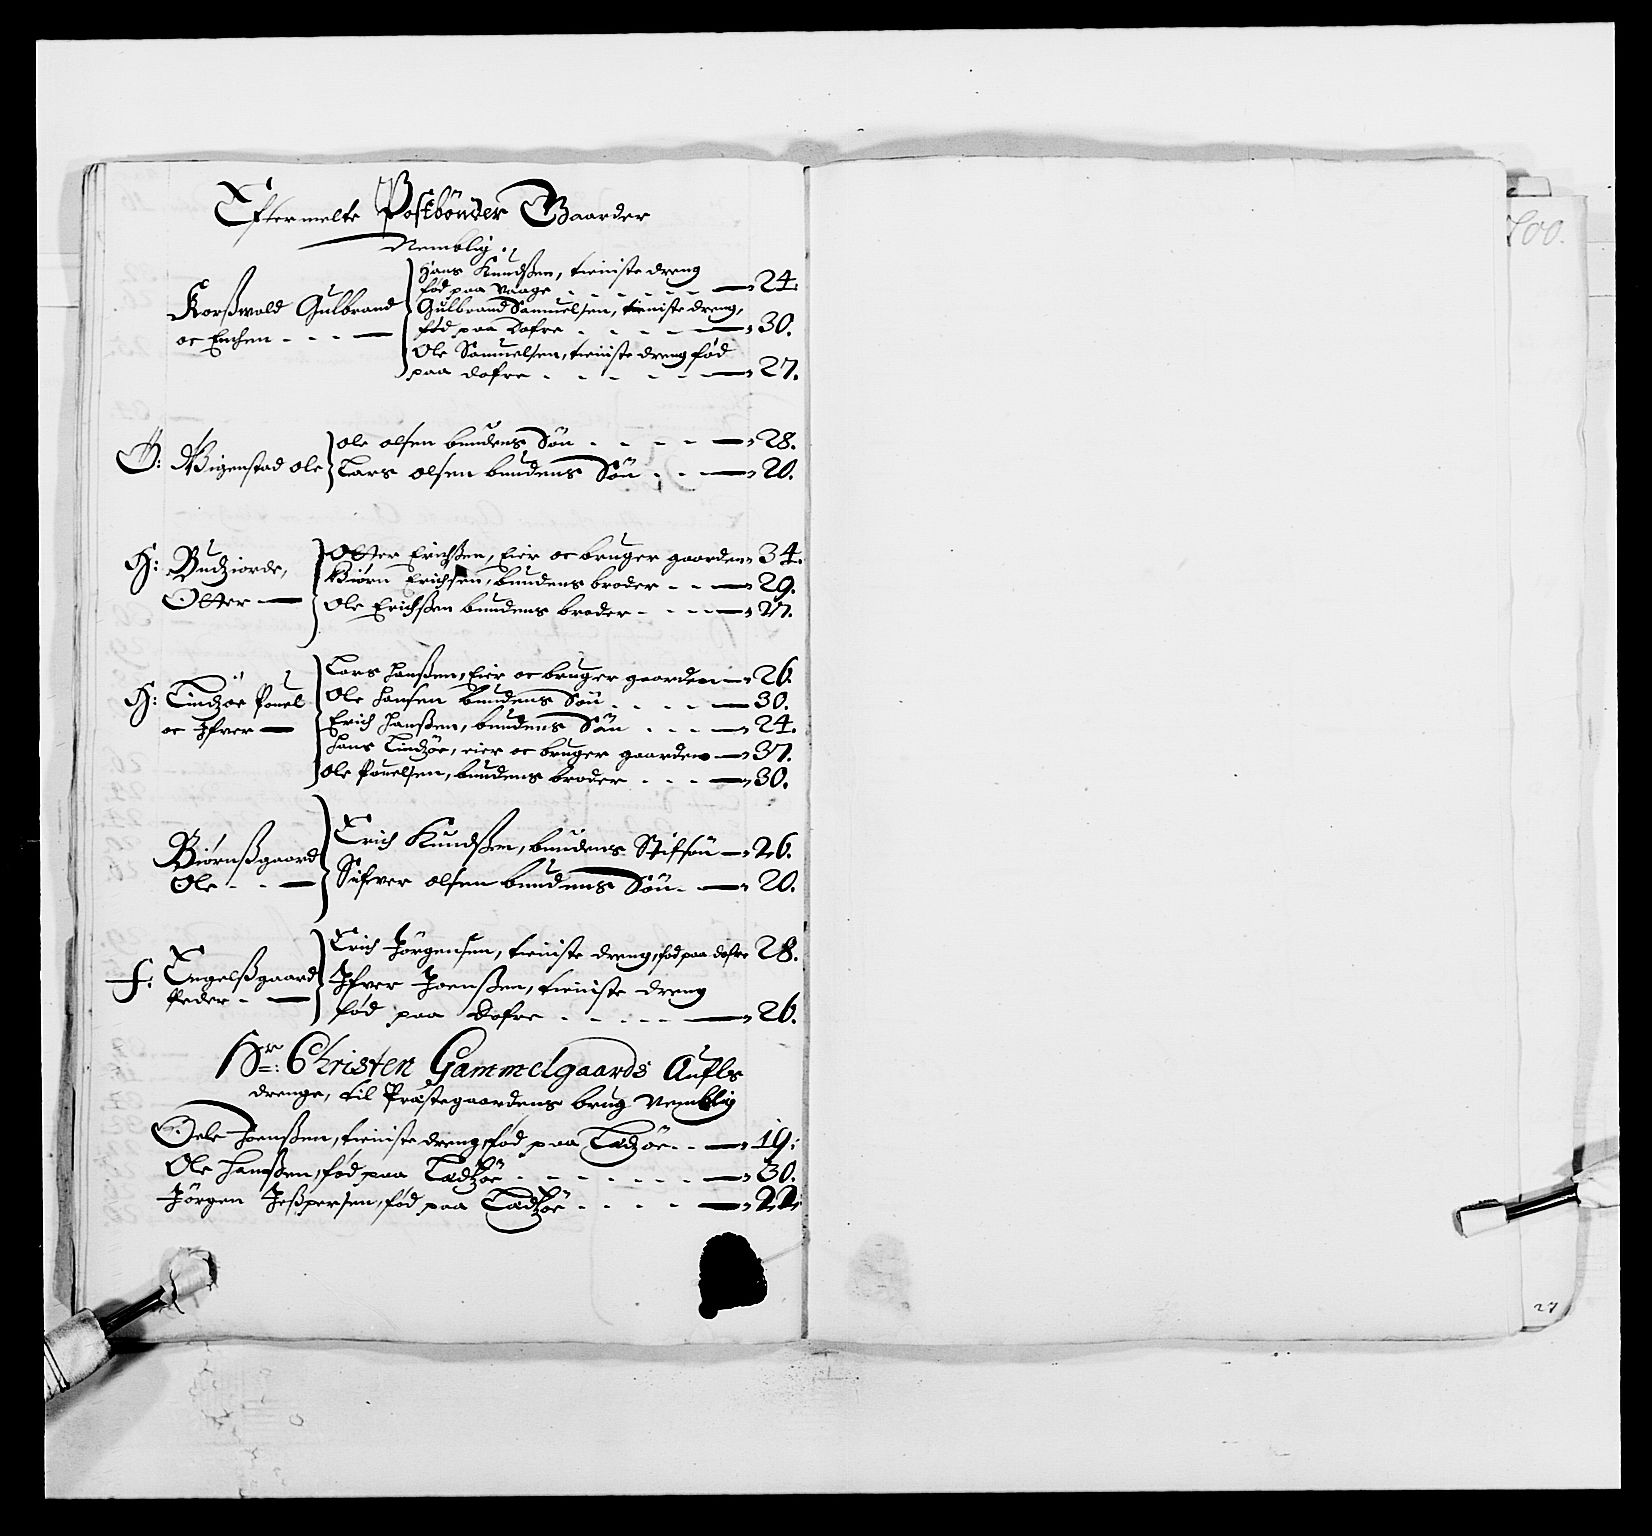 Eftermelte Postbønder Gaarder
Nemblig.
Korßwold Gulbrand
oc Enchen - - -
Hans Knudsßen, tieniste dreng
fød paa Waage - - - - - 24.
Gulbrand Samuelsen, tieniste dreng,
fød paa Dofre - - - - - 30.
Ole Samuelsen, tieniste dreng fød
paa dofre - - - - - 27.
Ø: Wigenstad Ole
Ole olsen bundens Søn - - - - 28.
Lars olsen bundens Søn - - - 20.
H: Budziorde,
Otter
Otter Erichßen, Eier oc bruger gaarden 34.
Biørn Erichsen, bundens broder - - 29.
Ole Erichßen bundens broder - - - 27.
H: Lindzøe Pouel
oc Ifver
Lars Hanßen, Eier oc bruger gaarden 26.
Ole Hansen bundens Søn - - - - 30.
Erich Hanßen, bundens Søn - - - 24.
Hans Lindzøe, eier oc bruger gaarden 37.
Ole Pouelsen, bundens broder - - - 30.
Biørnßgaard
Ole - -
Erich Knudsßen, bundens Stifsøn 26.
Sifver olsen bundens Søn - 20.
F: Engelßgaard
Peder -
Erich Jørgensen, tieniste dreng, fød paa dofre 28.
Ifver Joensßen, tieniste dreng
fød paa Dofre - - - - - 26.
Hr: Christen Gammelgaards Aufls
drenge, til Præstegaardens brug Nemblig
Joensßen, tieniste dreng, fød paa Ladzøe - - 19:
Ole Hansßen, fød paa Ladzøe - - - - - - - 30.
Jørgen Jeßpersen, fød paa Ladzøe - - - - 22.
100.
27